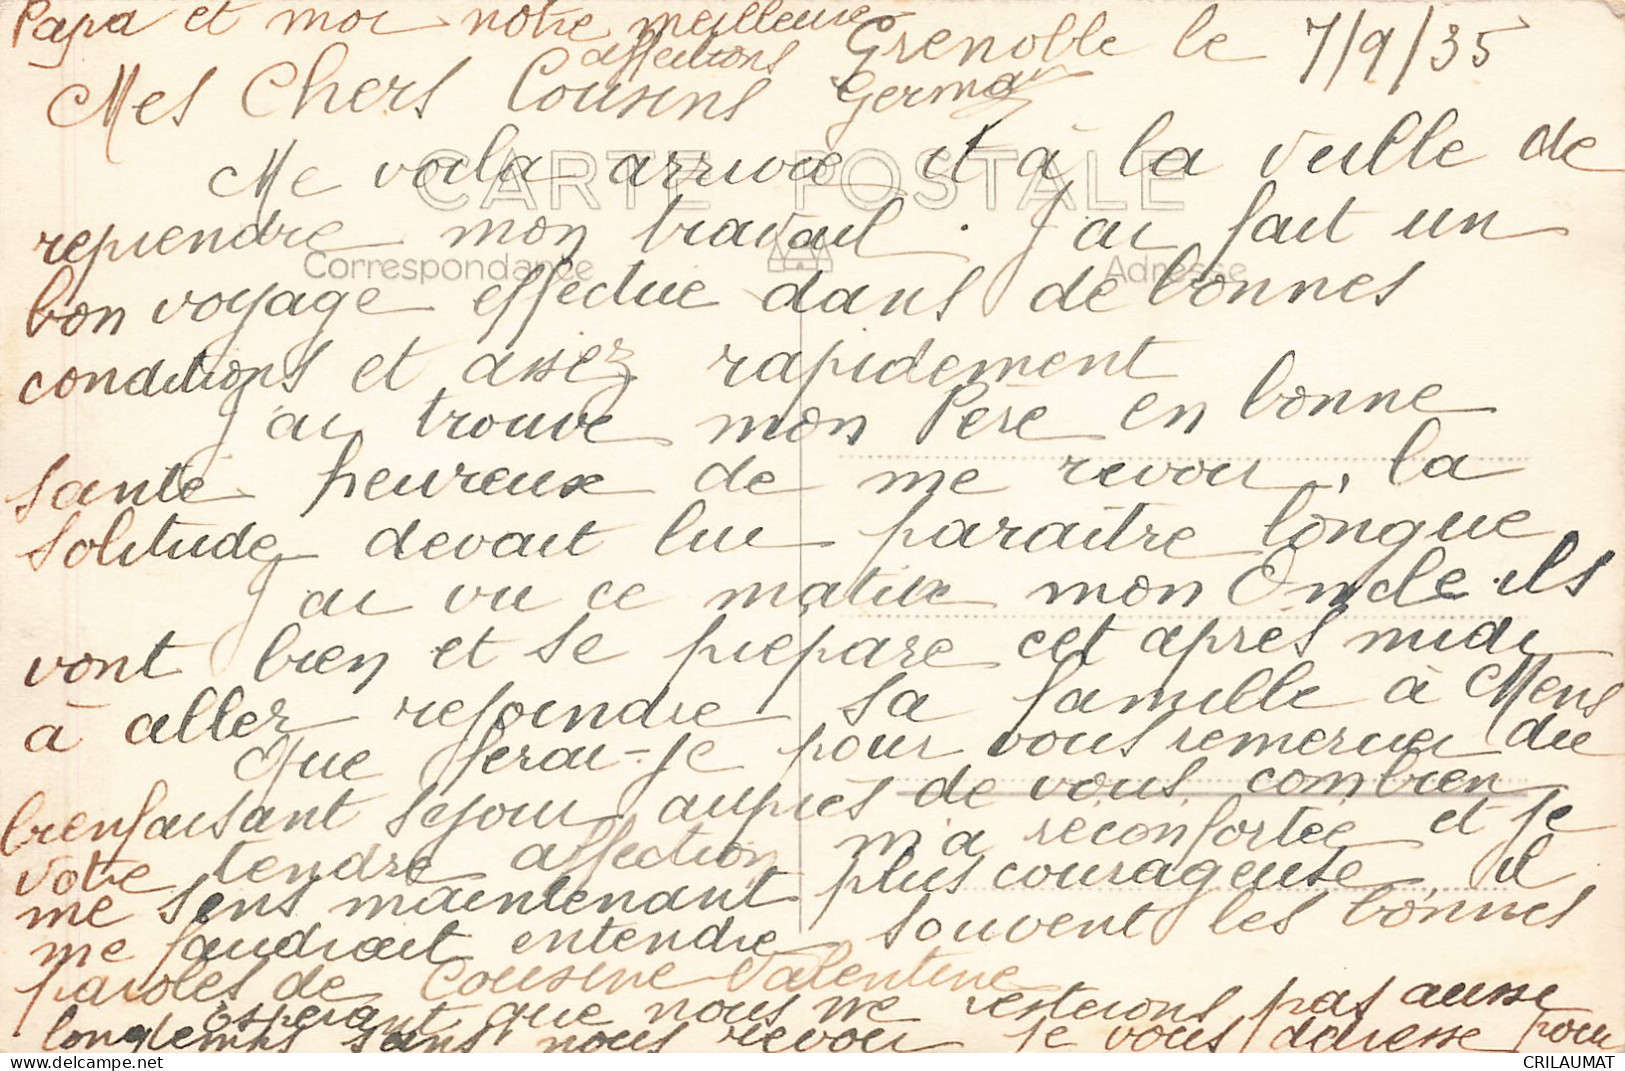 Papa et moi notre meilleure
affections
Grenoble le 7/9/35
Mes Chers Cousins
Germa
CARTE POSTALE
Me voila arrivée et à la veille de
reprendre mon travail. J'ai fait un
Correspondance
Adresse
bon voyage effectué dans de bonnes
conditions et assez rapidement
J'ai trouvé mon Père en bonne
santé heureux de me revoir, la
solitude devait lui paraître longue
J'ai vu ce matin mon Oncle ils
vont bien et se prépare cet après midi
à aller rejoindre sa famille à Mens
Que ferai-je pour vous remercier du
bienfaisant séjour auprès de vous combien
votre tendre affection m'a réconfortée et je
me sens maintenant plus courageuse, il
me faudrait entendre souvent les bonnes
paroles de Cousine Valentine
Espérant que nous ne resterons pas aussi
longtemps sans nous revoir je vous adresse pour
CRILAUMAT